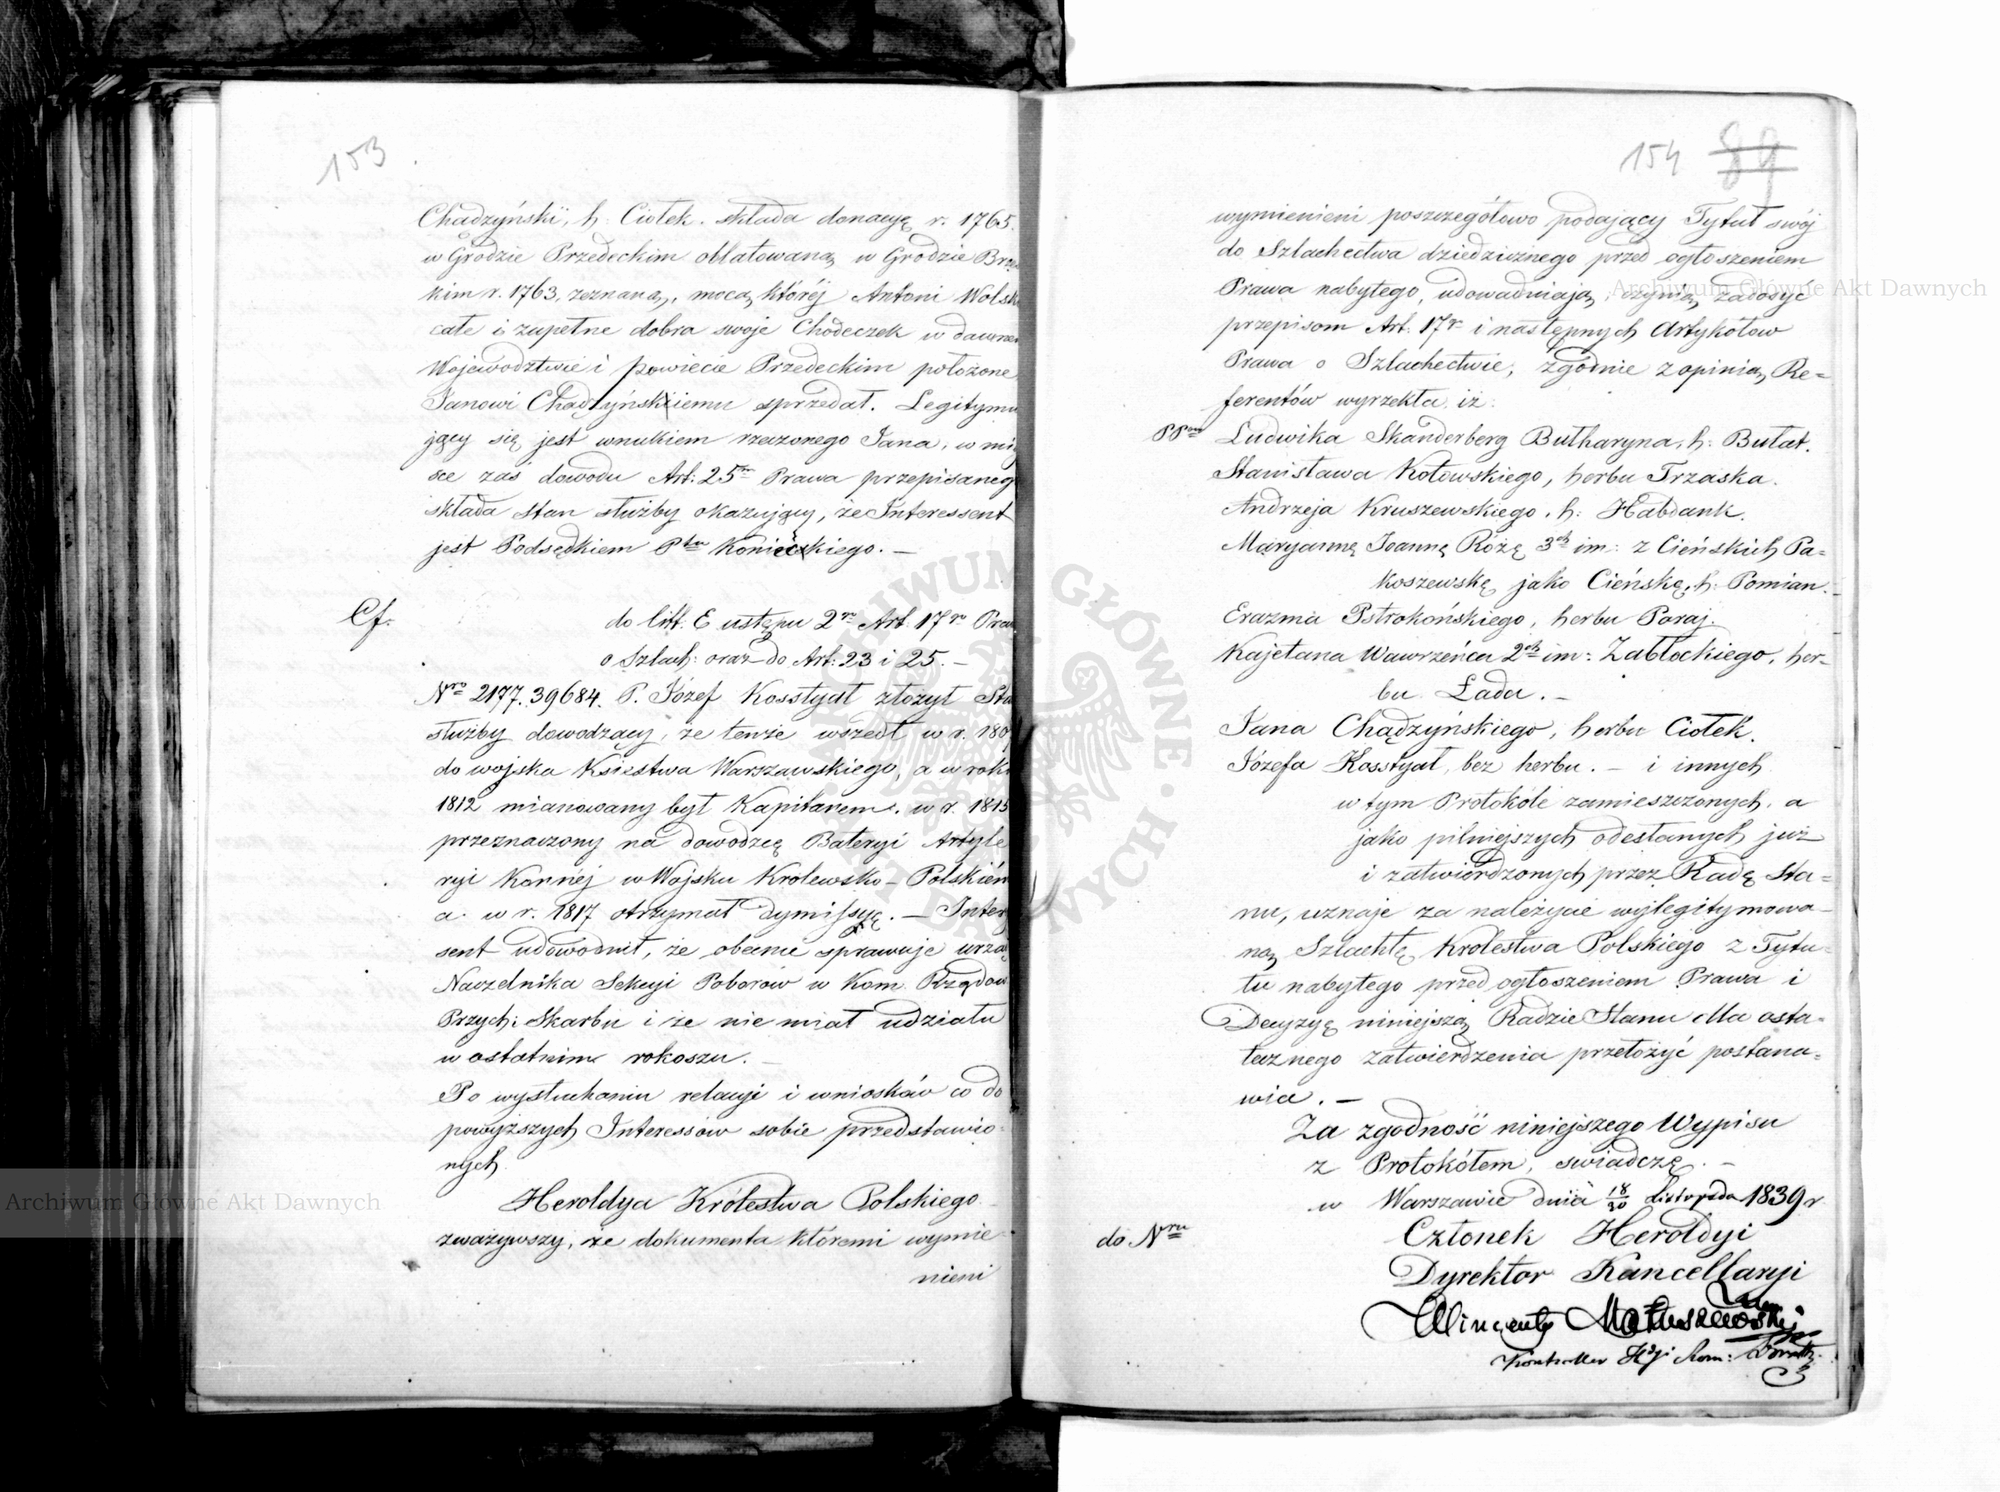 153
Chądzyński, h: Ciołek. składa donacyę r. 1765.
w Grodzie Przedeckim oblatowaną w Grodzie Brze
kim r. 1763, zeznaną, mocą któréj Antoni Wolsk
całe i zupełne dobra swoje Chodeczek w dawnem
Województwie i powiecie Przedeckim położone
Janowi Chądzyńskiiemu sprzedał. Legitymu
jący się jest wnukiem rzeczonego Jana, w miey
sce zaś dowodu Art: 25go Prawa przepisaneg
składa stan służby okazujący, że Interessent
jest Podsędkiem Ptu Konieckiego. —
Cf.
do litt. E ustępu 2go Art. 17go Praw
o Szlach: oraz do Art: 23 i 25. —
Nro 2177. 39684. P. Józef Kosstyał złożył Sta
służby dowodzący, że tenże wszedł w r. 180
do wojska Księstwa Warszawskiego, a w rok
1812 mianowany był Kapitanem, w r. 1815
przeznaczony na dowódzcę Bateryi Artyle
ryi Konnéj w Wojsku Królewsko-Polskiém
a w r. 1817 otrzymał dymissyę. — Inter
sent udowodnił, że obecnie sprawuje urzą
Naczelnika Sekcyi Poborów w Kom. Rządow
Przych: Skarbu i że nie miał udziału
w ostatnim rokoszu. —
Po wysłuchaniu relacyi i wniosków co do
powyższych Interessów sobie przedstawio-
nych
Heroldya Królestwa Polskiego
zważywszy, że dokumenta któremi wymie-
nieni
154 89
wymienieni poszczegółowo podający Tytuł swój
do Szlachectwa dziedzicznego przed ogłoszeniem
Prawa nabytego, udowadniają, czynią zadosyć
przepisom Art: 17go i następnych Artykółow
Prawa o Szlachectwie, zgodnie z opinią Re=
ferentów wyrzekła iż:
PPów Ludwika Skanderberg Butharyna, h: Bułat.
Stanisława Kotowskiego, herbu Trzaska.
Andrzeja Kruszewskiego, h: Habdank.
Maryannę Joannę Różę 3ch im: z Cieńskich Pa=
koszewskę jako Cieńskę, h: Pomian.
Erazmia Pstrokońskiego, herbu Poraj.
Kajetana Wawrzeńca 2ch im: Zabłockiego, her-
bu Łada. —
Jana Chądzyńskiego, herbu Ciołek.
Józefa Kosstyał, bez herbu. — i innych
w tym Protokóle zamieszczonych, a
jako pilniejszych odesłanych już
i zatwierdzonych przez Radę Sta=
nu, uznaje za należycie wylegitymowa-
ną Szlachtę Królestwa Polskiego z Tytu-
łu nabytego przed ogłoszeniem Prawa i
Decyzyę niniejszą Radzie Stanu dla osta=
tecznego zatwierdzenia przełożyć postana=
wia. —
Za zgodność niniejszego Wypisu
z Protokółem, swiadczę. —
w Warszawie dnia 18/30 Listopada 1839 r.
do Nru
Członek Heroldyi
Dyrektor Kancellaryi
Wincenty Matuszewski
Kontroller
Archiwum Główne Akt Dawnych
Archiwum Główne Akt Dawnych
ARCHIWUM GŁÓWNE AKT DAWNYCH